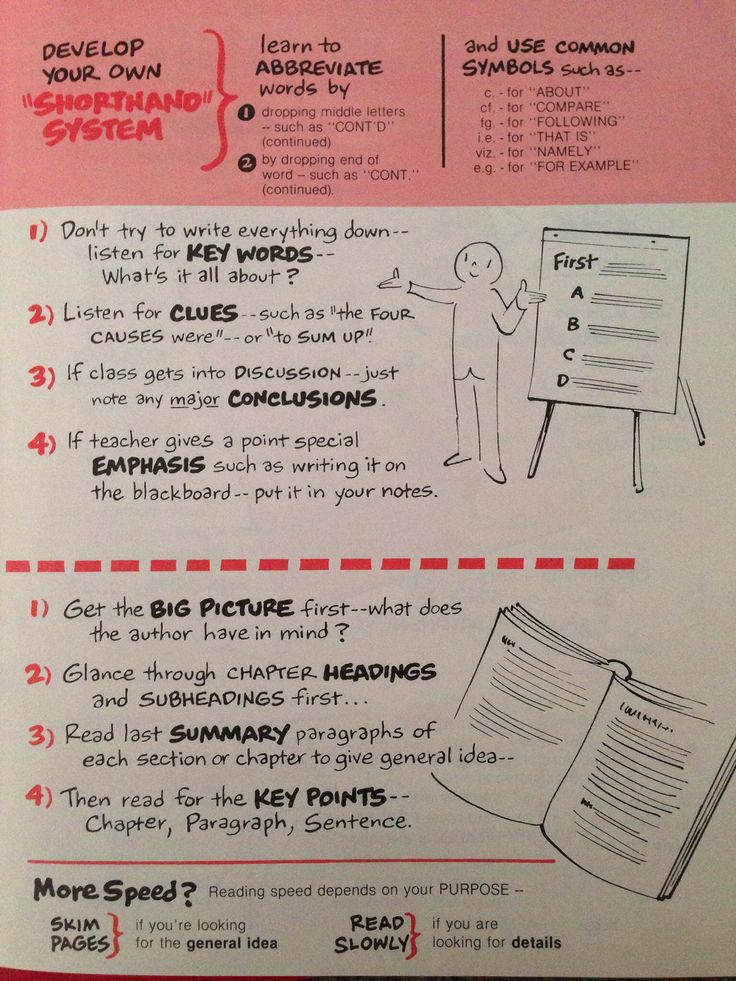 DEVELOP
YOUR OWN
"SHORTHAND"
SYSTEM
learn to
ABBREVIATE
words by
1 dropping middle letters
-- such as "CONT'D"
(continued)
2 by dropping end of
word -- such as "CONT."
(continued).
and USE COMMON
SYMBOLS such as--
c. - for "ABOUT"
cf. - for "COMPARE"
fg. - for "FOLLOWING"
i.e. - for "THAT IS"
viz. - for "NAMELY"
e.g. - for "FOR EXAMPLE"
1) Don't try to write everything down--
listen for KEY WORDS--
What's it all about?
2) Listen for CLUES--such as "the FOUR
CAUSES were"--or "to SUM UP".
3) If class gets into DISCUSSION--just
note any major CONCLUSIONS.
4) If teacher gives a point special
EMPHASIS such as writing it on
the blackboard--put it in your notes.
First
A
B
C
D
1) Get the BIG PICTURE first--what does
the author have in mind?
2) Glance through CHAPTER HEADINGS
and SUBHEADINGS first...
3) Read last SUMMARY paragraphs of
each section or chapter to give general idea--
4) Then read for the KEY POINTS--
Chapter, Paragraph, Sentence.
More Speed? Reading speed depends on your PURPOSE --
SKIM
PAGES
if you're looking
for the general idea
READ
SLOWLY
if you are
looking for details